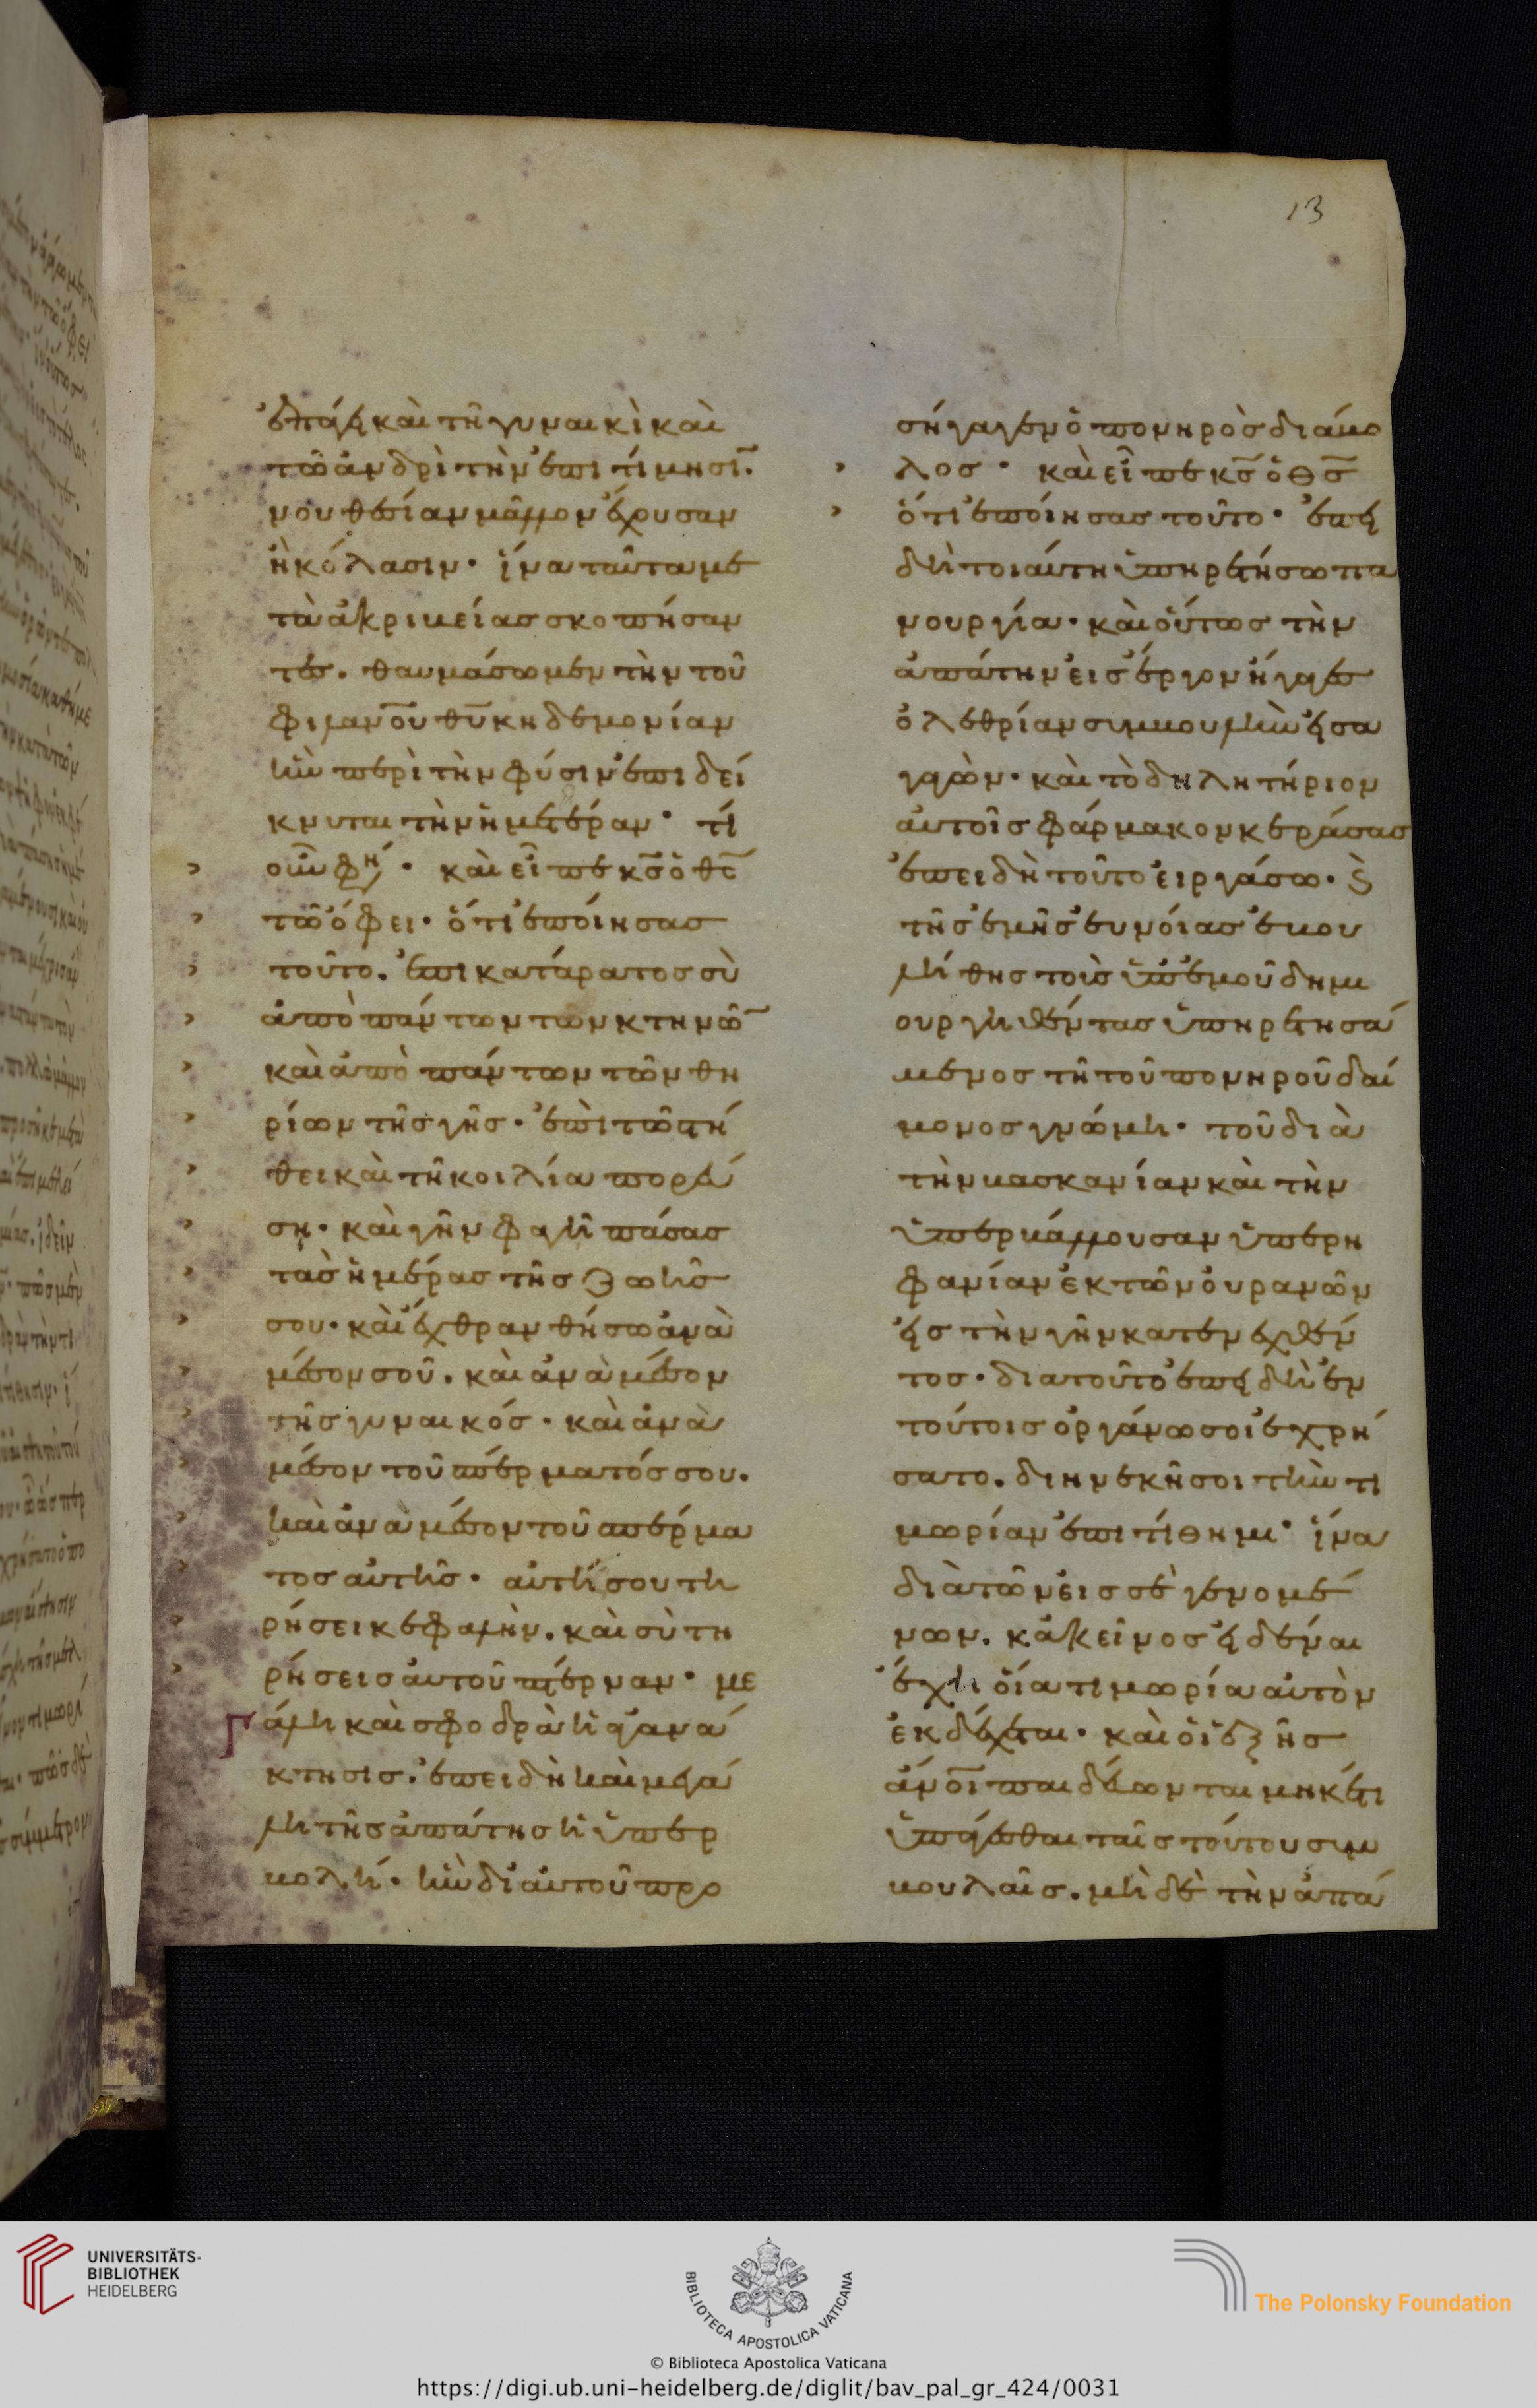 13
ἐπάγει καὶ τῆ γυναικὶ καὶ
τῶ ἀνδρὶ τὴν ἐπιτίμησῖ.
νουθεσίαν μᾶλλον ἔχουσαν
ἢ κόλασιν· ἵνα ταῦτα με
τὰ ἀκριβείας σκοπήσαν
τες. θαυμάσωμεν τὴν τοῦ
φιλαν̅ο̅υ θ̅υ̅ κηδεμονίαν
ἣν περὶ τὴν φύσιν ἐπιδεί
κνυται τὴν ἡμετέραν· τί
οὖν φη· καὶ εἶπε κ̅ς̅ ὁ θ̅ς̅
τῶ ὄφει· ὅτι ἐποίησας
τοῦτο. ἐπικατάρατος σὺ
ἀπὸ πάντων τῶν κτηνῶ̅
καὶ ἀπὸ πάντων τῶν θη
ρίων τῆς γῆς· ἐπὶ τῶ στή
θει καὶ τῆ κοιλία πορεύ
ση· καὶ γῆν φαγῆ πάσας
τὰς ἡμέρας τῆς ζωῆς
σου· καὶ ἔχθραν θήσω ἀνὰ
μέσον σοῦ. καὶ ἀνὰ μέσον
τῆς γυναικός· καὶ ἀνὰ
μέσον τοῦ σπέρματός σου.
καὶ ἀνὰ μέσον τοῦ σπέρμα
τος αὐτῆς· αὐτή σου τη
ρήσει κεφαλὴν. καὶ σὺ τη
ρήσεις αὐτοῦ πτέρναν· με
Γάλη καὶ σφοδρὰ ἡ ἀγανά
κτησις. ἐπειδὴ καὶ μεγά
λη τῆς ἀπάτης ἡ ὑπερ
βολή· ἣν δι αὐτοῦ προ
σήγαγεν ὁ πονηρὸς διάβο
λος· καὶ εἶπε κ̅ς̅ ὁ θ̅ς̅
ὅτι ἐποίησας τοῦτο· ἐπει
δὴ τοιαύτη ὑπηρετήσω πα
νουργία· καὶ οὕτως τὴν
ἀπάτην εἰς ἔργον ἤγαγες
ὀλεθρίαν συμβουλὴν εἰσα
γαγὼν· καὶ τὸ δηλητήριον
αὐτοῖς φάρμακον κεράσας
ἐπειδὴ τοῦτο εἰργάσω. ϗ
τῆς ἐμῆς εὐνοίας ἐβου
λήθης τοὺς ὑπ ἐμοῦ δημι
ουργηθέντας ὑπηρετησά
μενος τῆ τοῦ πονηροῦ δαί
μονος γνώμη· τοῦ διὰ
τὴν βασκανίαν καὶ τὴν
ὑπερβάλλουσαν ὑπερη
φανίαν ἐκ τῶν οὐρανῶν
εἰς τὴν γῆν κατενεχθέν
τος· διατοῦτο ἐπειδὴ ἐν
τούτοις ὀργάνω σοι ἐχρή
σατο. διηνεκῆ σοι τὴν τι
μωρίαν ἐπιτίθημι· ἵνα
διὰ τῶν εἰς σὲ γενομέ
νων. κἀκεῖνος εἰδέναι
ἔχη οἵα τιμωρία αὐτὸν
ἐκδέχεται· καὶ οἱ ἑξῆς
ἄν̅ο̅ι παιδεύωνται μηκέτι
ὑπάγεσθαι ταῖς τούτου συμ
βουλαῖς. μὴ δὲ τὴν ἀπά
UNIVERSITÄTS-
BIBLIOTHEK
HEIDELBERG
BIBLIOTECA APOSTOLICA VATICANA
The Polonsky Foundation
© Biblioteca Apostolica Vaticana
https://digi.ub.uni-heidelberg.de/diglit/bav_pal_gr_424/0031